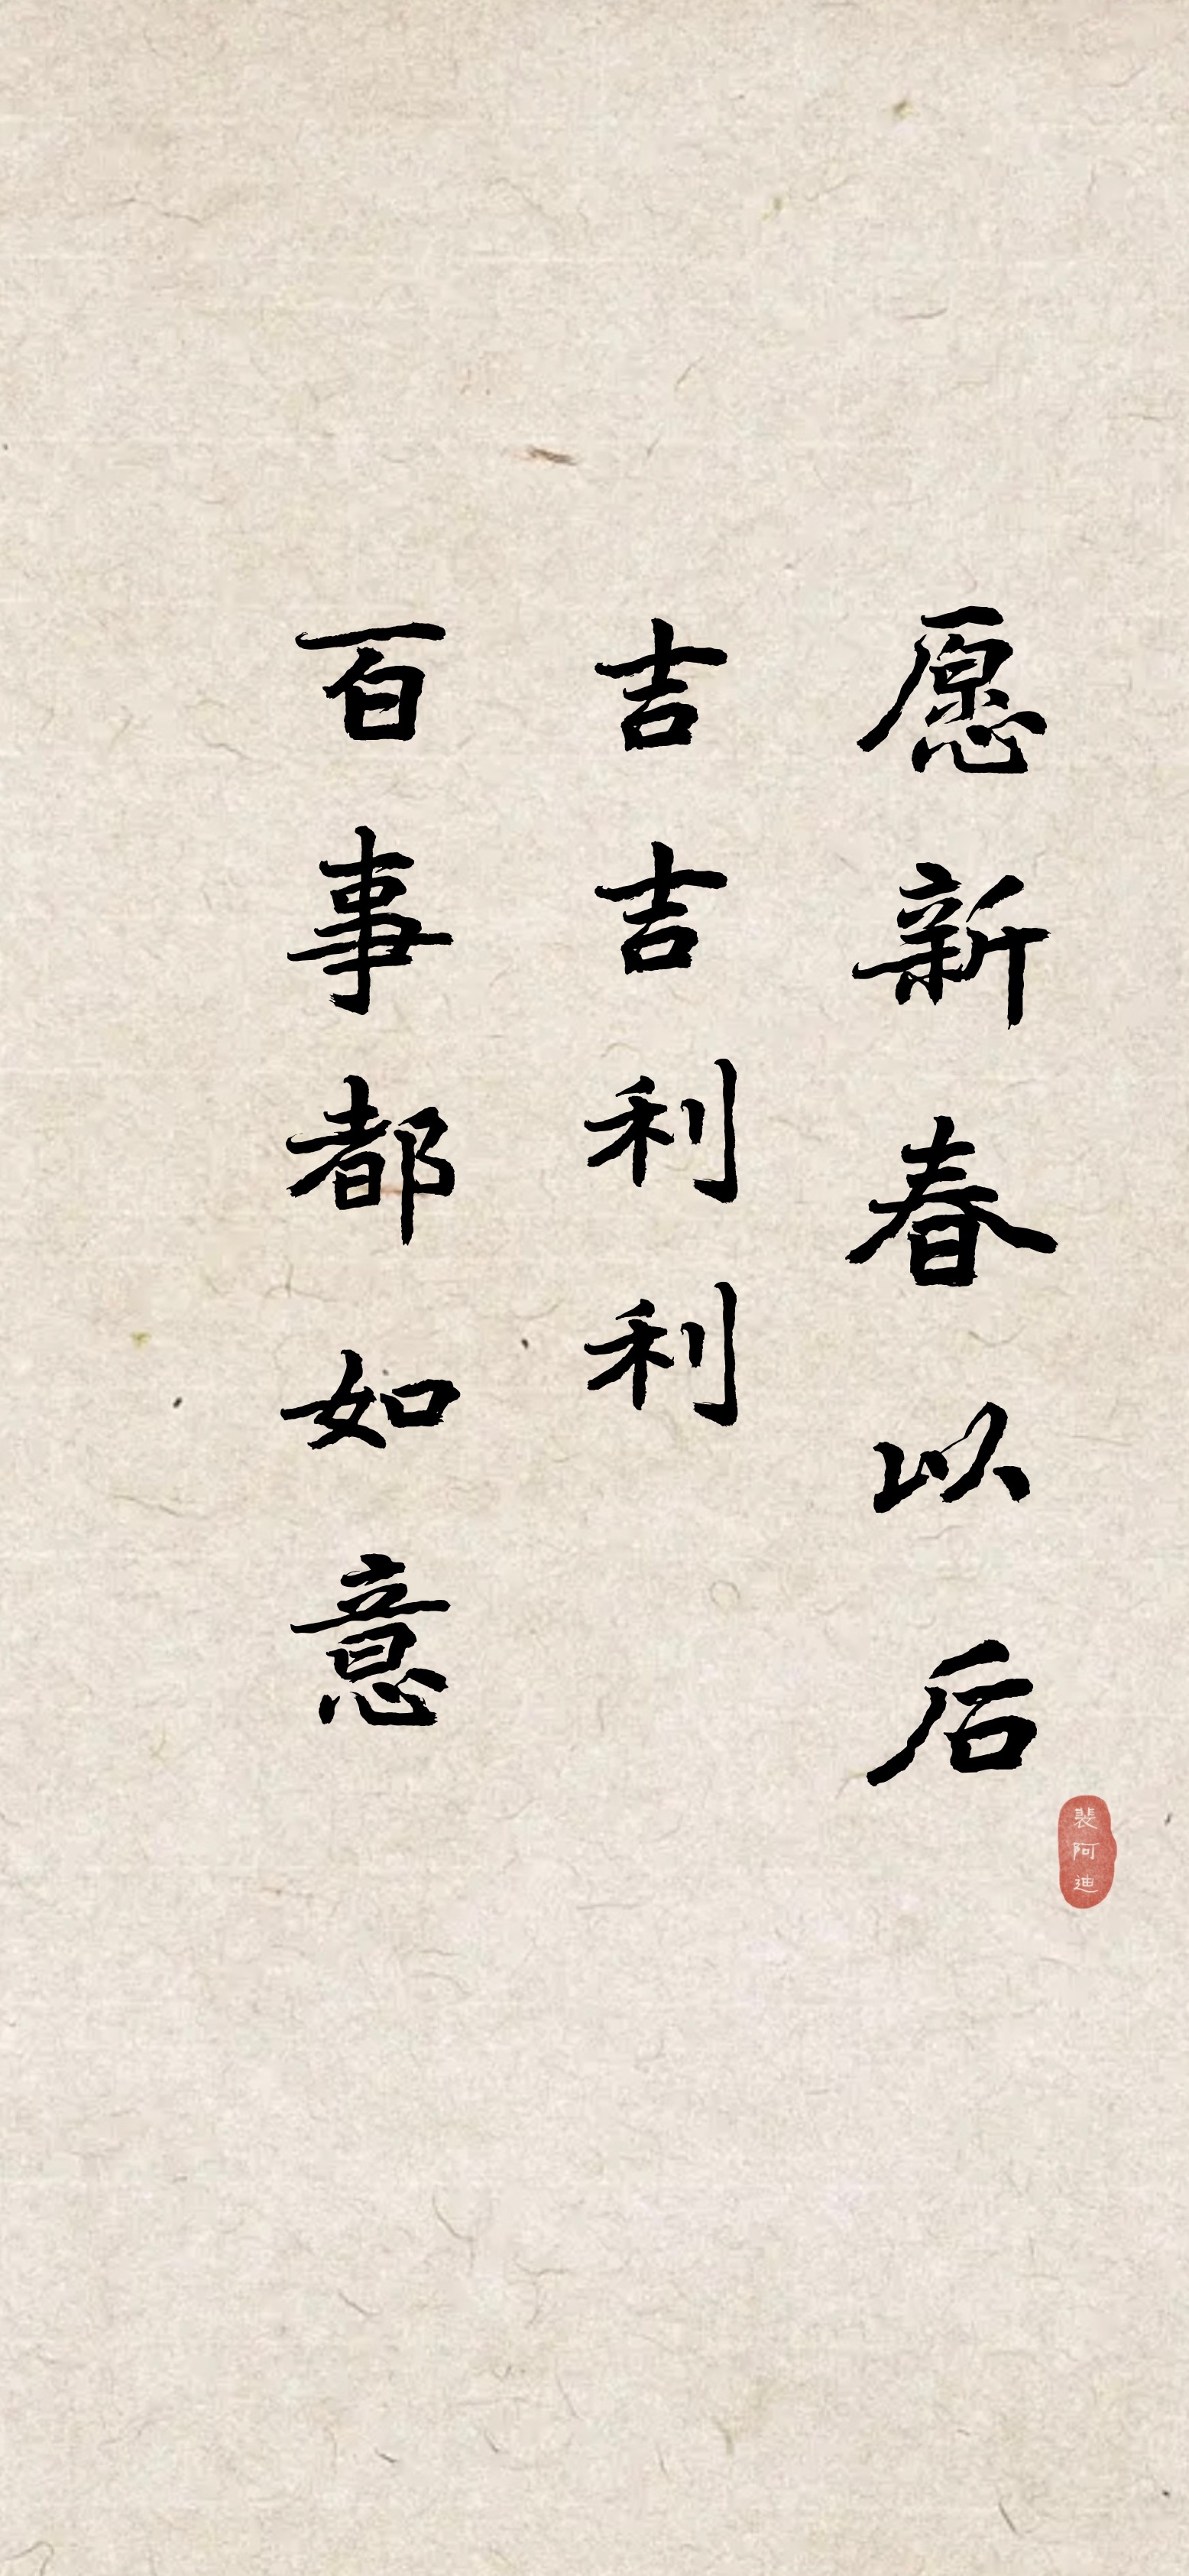 愿新春以后
吉吉利利
百事都如意
裴阿迪